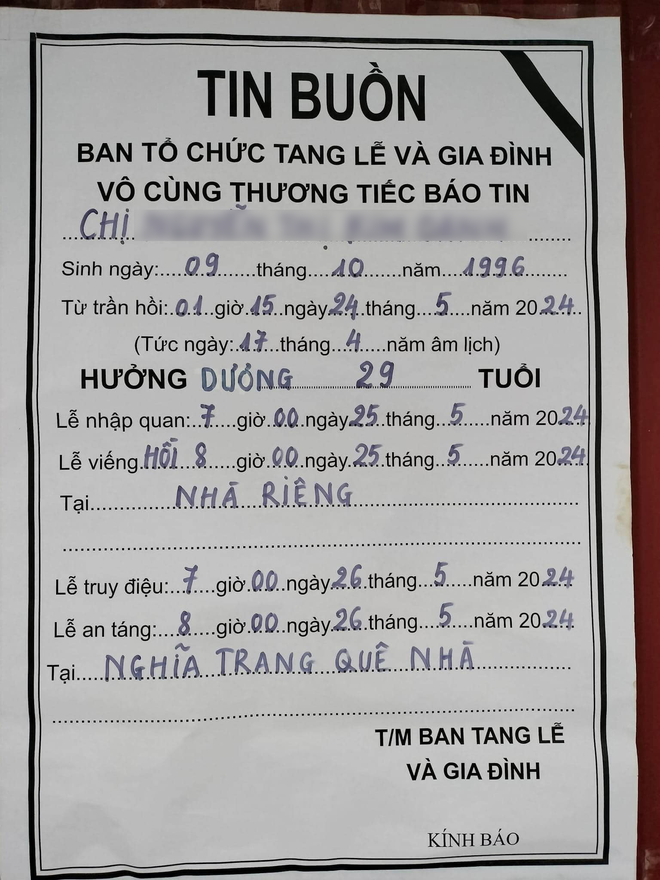 TIN BUỒN
BAN TỔ CHỨC TANG LỄ VÀ GIA ĐÌNH
VÔ CÙNG THƯƠNG TIẾC BÁO TIN
CHỊ
Sinh ngày:....09......tháng....10......năm....1996.......
Từ trần hồi:.01.giờ.15..ngày.24.tháng...5...năm 2024.
(Tức ngày:.17..tháng..4....năm âm lịch)
HƯỞNG DƯƠNG 29 TUỔI
Lễ nhập quan:..7....giờ.00.ngày.25.tháng...5.....năm 2024
Lễ viếng HỒI 8 giờ.00.ngày.25.tháng...5.....năm 2024
Tại NHÀ RIÊNG
Lễ truy điệu:..7...giờ 00.ngày.26.tháng...5....năm 2024
Lễ an táng:...8....giờ 00.ngày.26.tháng...5....năm 2024
Tại NGHĨA TRANG QUÊ NHÀ
T/M BAN TANG LỄ
VÀ GIA ĐÌNH
KÍNH BÁO